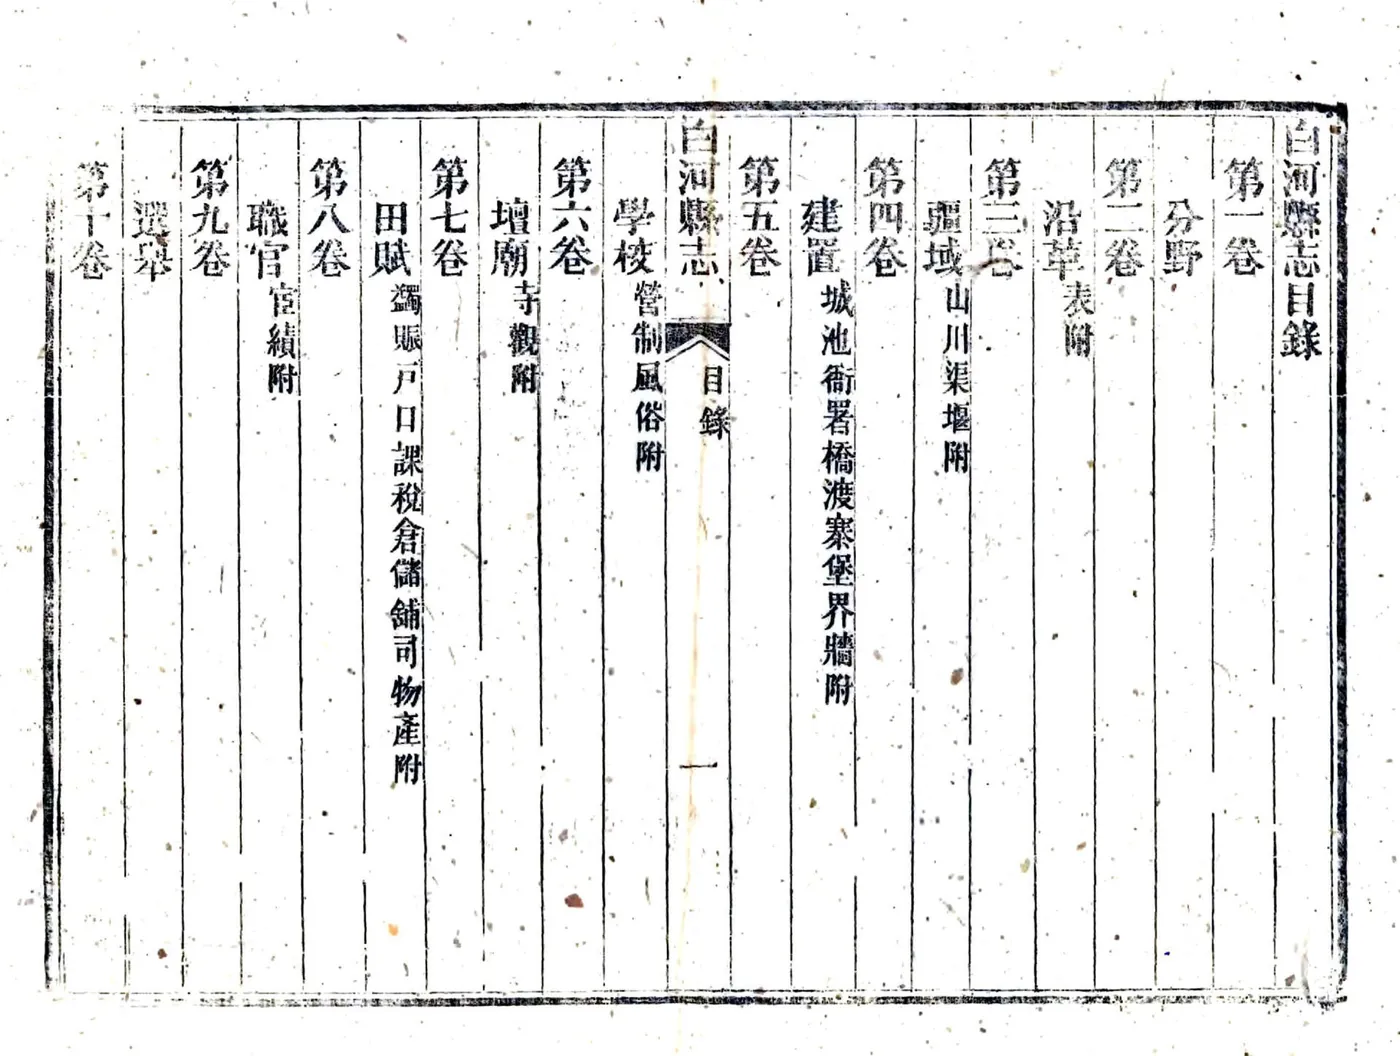 白河縣志目錄
第一卷
分野
第二卷
沿革表附
第三卷
疆域山川渠堰附
第四卷
建置城池衙署橋渡寨堡界牆附
第五卷
白河縣志 目錄 一
學校營制風俗附
第六卷
壇廟寺觀附
第七卷
田賦蠲賑戶口課稅倉儲舖司物產附
第八卷
職官宦績附
第九卷
選舉
第十卷